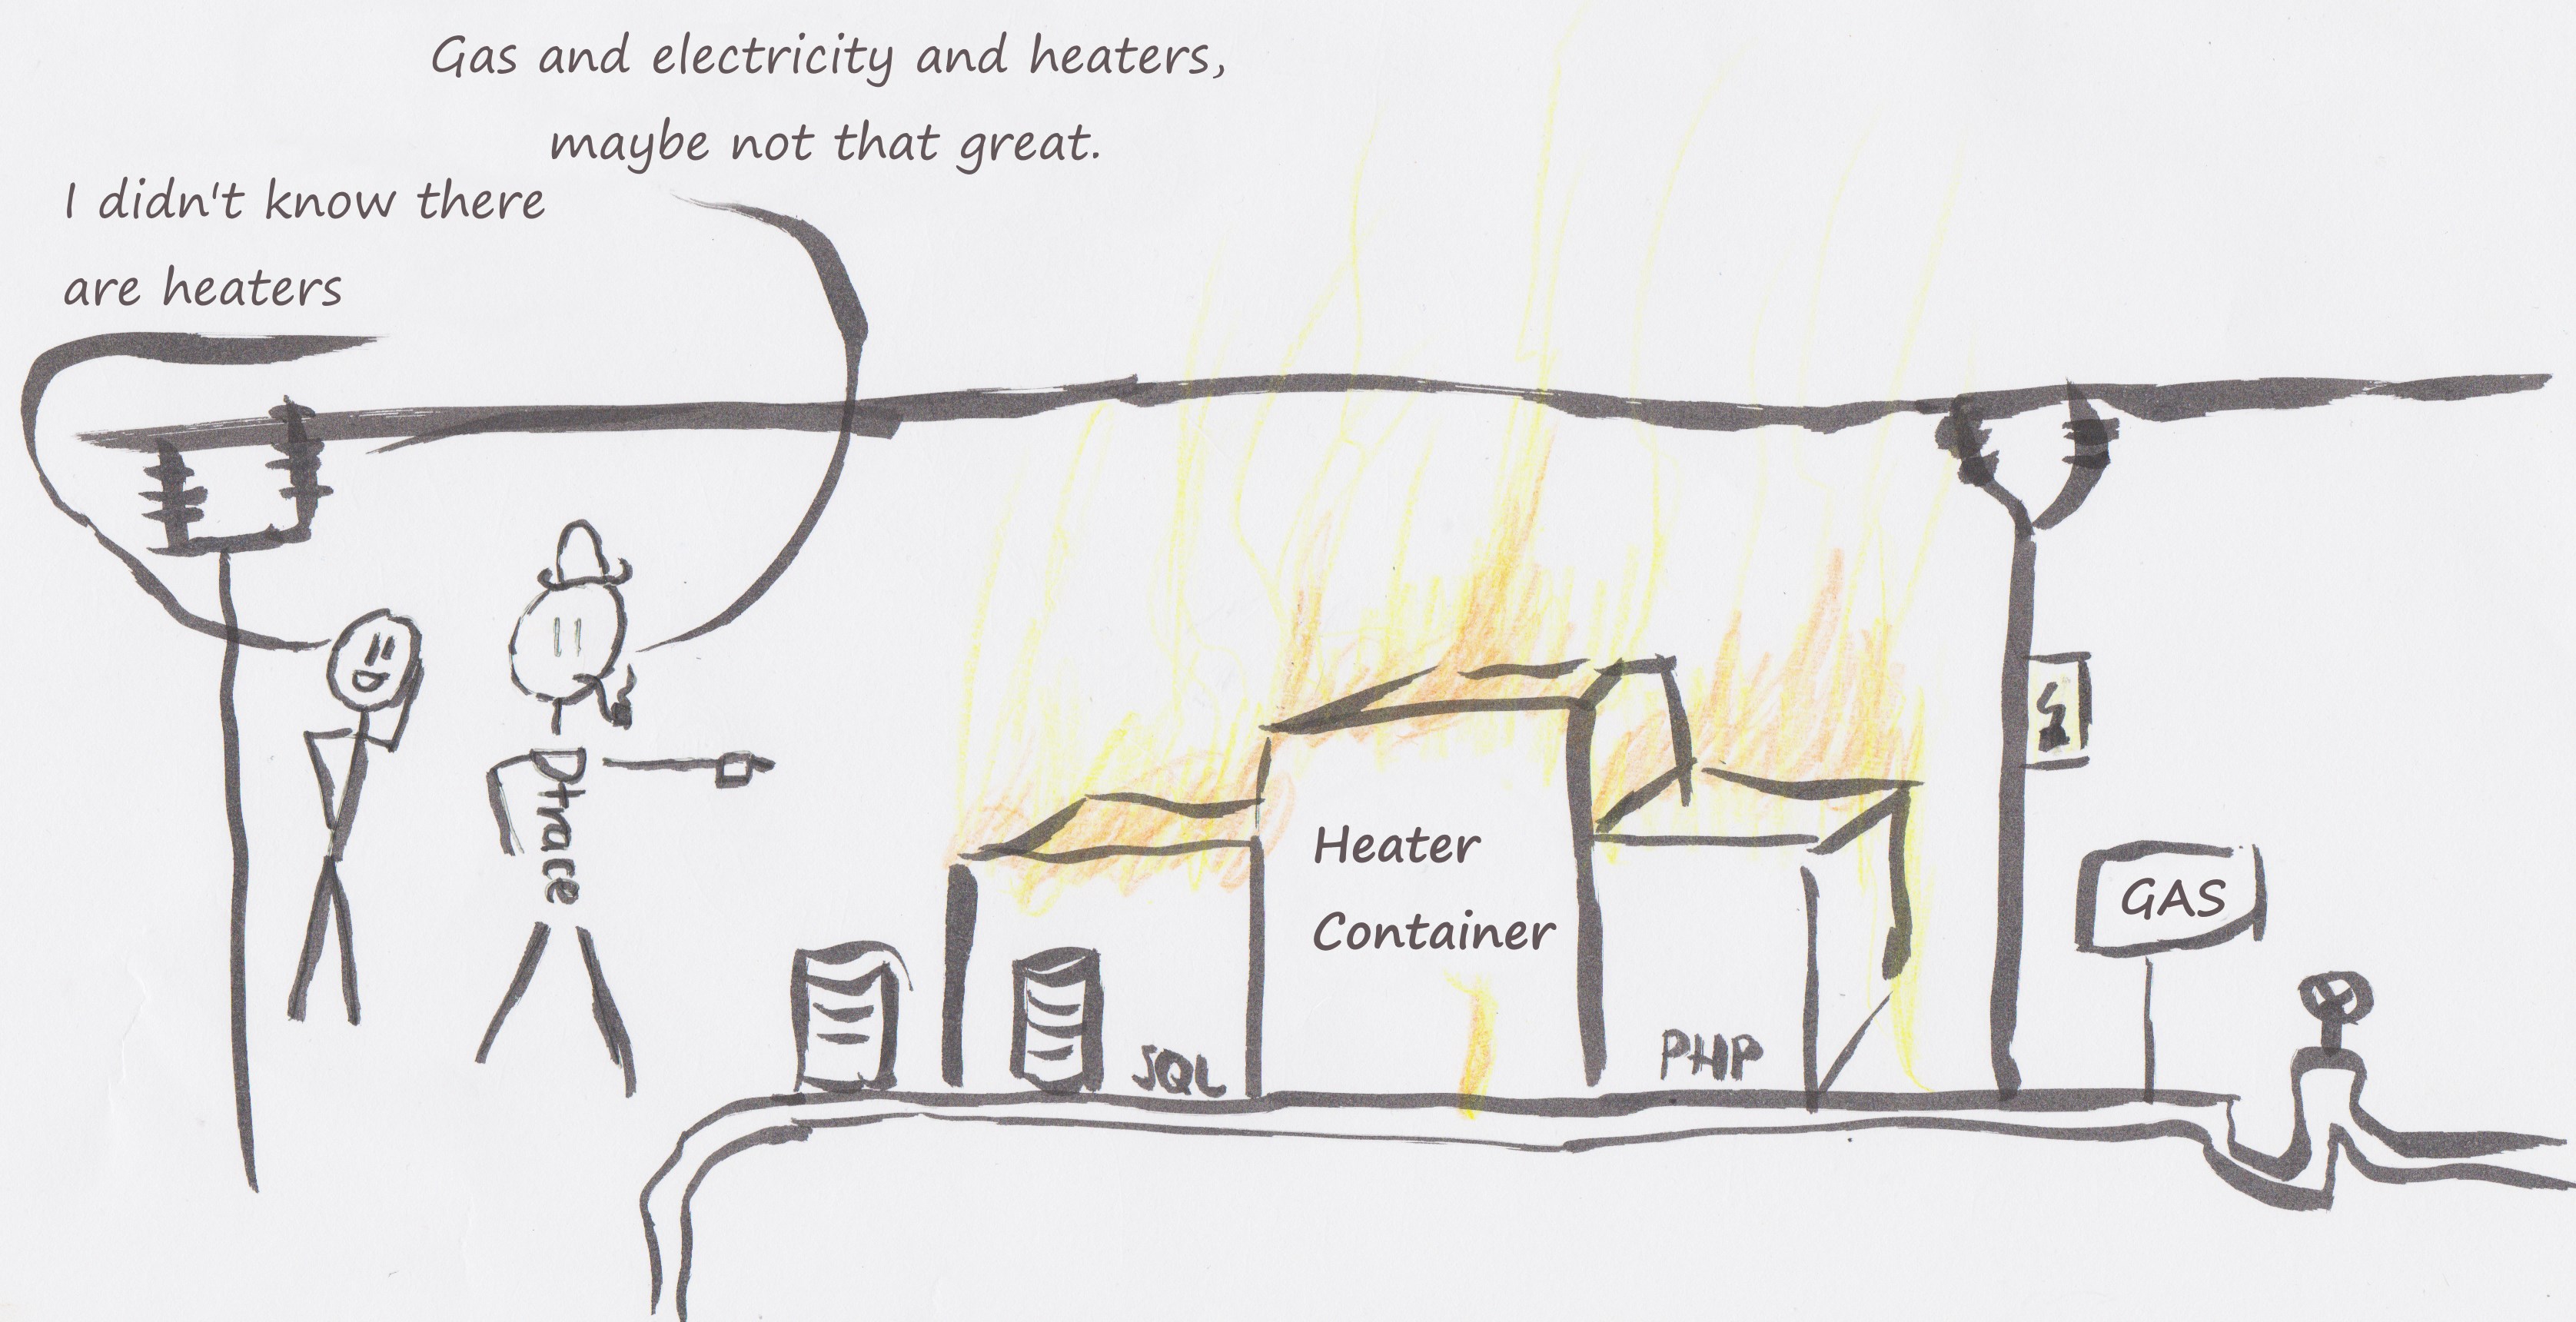 Gas and electricity and heaters,
maybe not that great.
I didn't know there
are heaters
Dtrace
Heater
Container
GAS
SQL
PHP